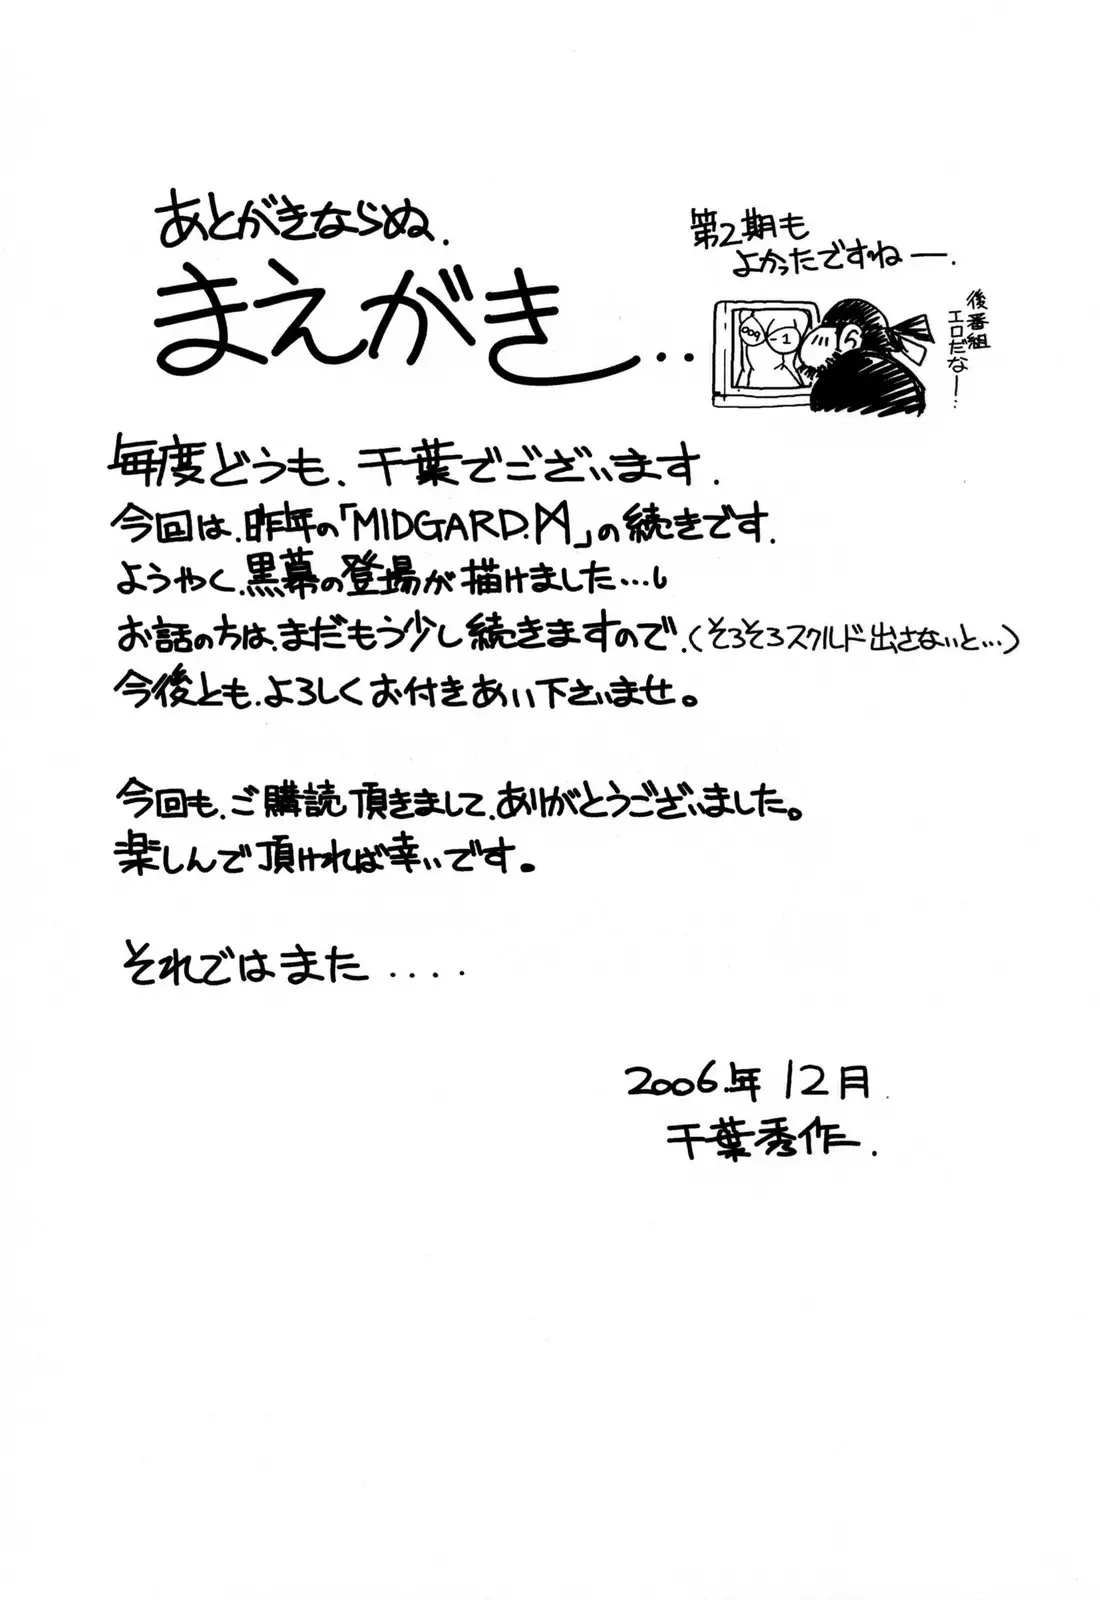 あとがきならぬ.
まえがき...
第2期も
よかったですねー.
後番組
エロだなー..
009
-1
毎度どうも、千葉でございます.
今回は、昨年の「MIDGARD.ᛞ」の続きです.
ようやく、黒幕の登場が描けました…し
お話の方は、まだもう少し続きますので、(そろそろスクルド出さないと…)
今後とも、よろしくお付きあい下さいませ。
今回も、ご購読頂きまして、ありがとうございました。
楽しんで頂ければ幸いです。
それではまた....
2006年12月
千葉秀作.